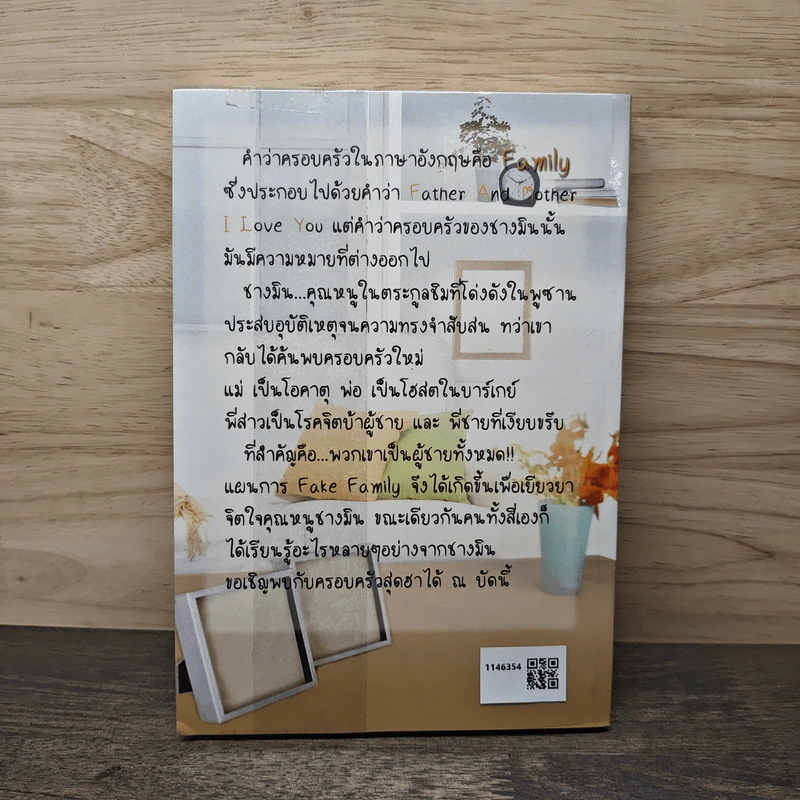 คำว่าครอบครัวในภาษาอังกฤษคือ Family
ซึ่งประกอบไปด้วยคำว่า Father And Mother
I Love You แต่คำว่าครอบครัวของชางมินนั้น
มันมีความหมายที่ต่างออกไป
ชางมิน...คุณหนูในตระกูลชิมที่โด่งดังในพูซาน
ประสบอุบัติเหตุจนความทรงจำสับสน ทว่าเขา
กลับได้ค้นพบครอบครัวใหม่
แม่ เป็นโอคาตุ พ่อ เป็นโฮสต์ในบาร์เกย์
พี่สาวเป็นโรคจิตบ้าผู้ชาย และ พี่ชายที่เงียบขรึบ
ที่สำคัญคือ...พวกเขาเป็นผู้ชายทั้งหมด!!
แผนการ Fake Family จึงได้เกิดขึ้นเพื่อเยียวยา
จิตใจคุณหนูชางมิน ขณะเดียวกันคนทั้งสี่เองก็
ได้เรียนรู้อะไรหลายๆอย่างจากชางมิน
ขอเชิญพบกับครอบครัวสุดฮาได้ ณ บัดนี้
1146354